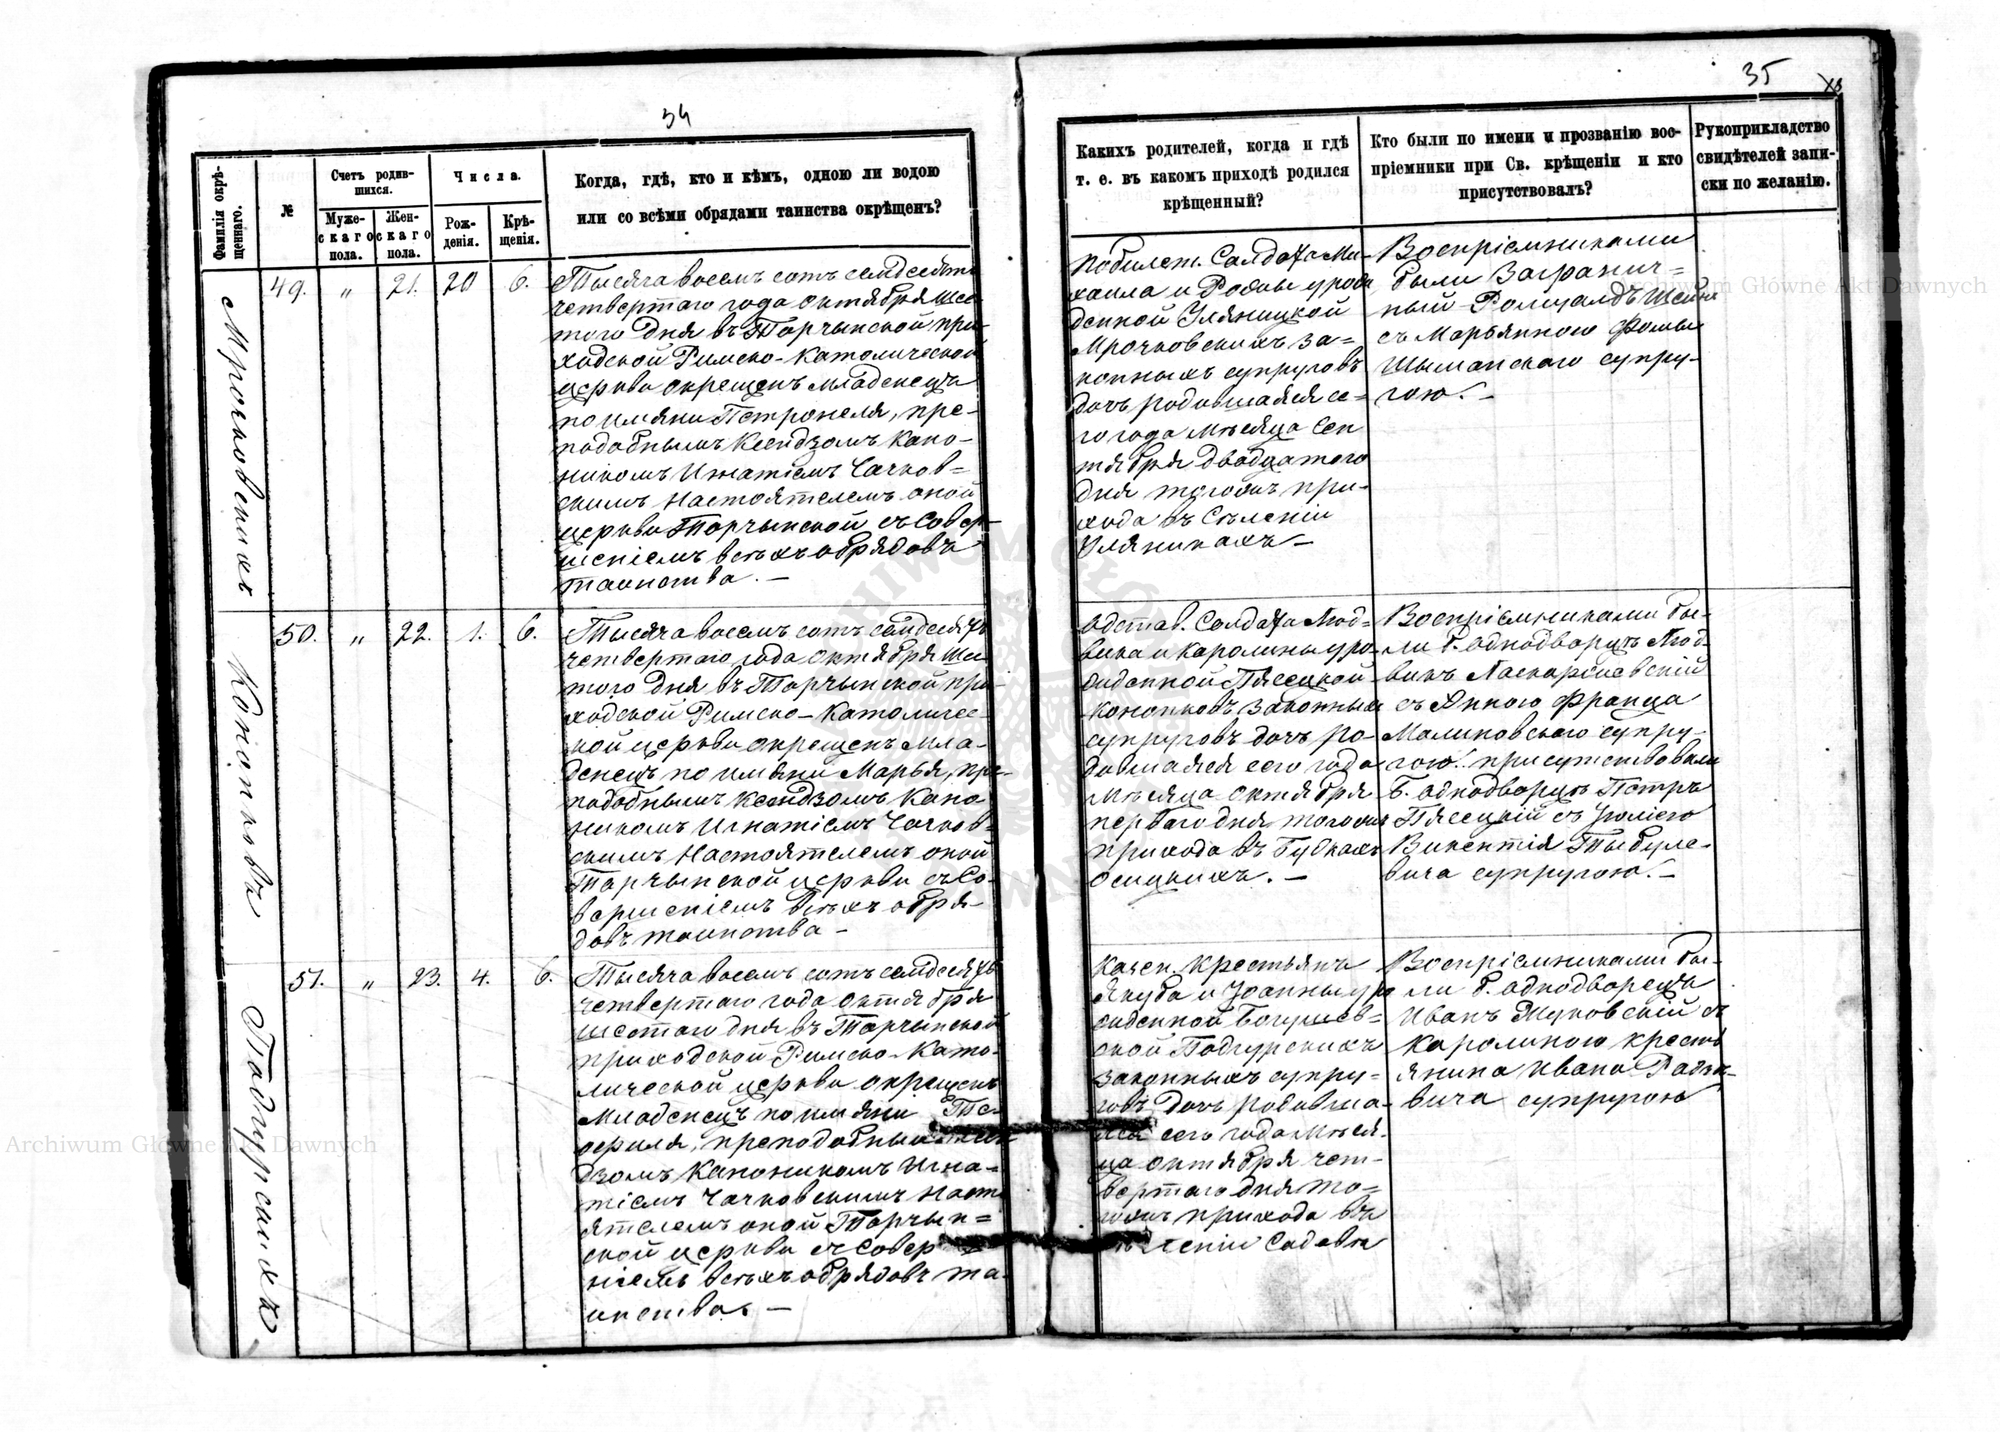 34
Фамилія окрѣ-
щеннаго.
№
Счетъ родив-
шихся.
Муже-
скаго
пола.
Жен-
скаго
пола.
Числа.
Рож-
денія.
Крѣ-
щенія.
Когда, гдѣ, кто и кѣмъ, одною ли водою
или со всѣми обрядами таинства окрѣщенъ?
Мрочковскихъ
49. " 21. 20 6.
Тысяча восемъ сотъ семдесятъ
четвертаго года октября шес
того дня въ Торчынской при-
ходской Римско-Католической
церкви окрещенъ младенецъ
по имяни Петронеля, пре-
подобнымъ Ксендзомъ Кано-
никомъ Игнатіемъ Чачков-
скимъ Настоятелемъ оной
церкви Торчынской съ Совер-
шеніемъ всѣхъ обрядовъ
таинства. —
Копіонковъ
50. " 22. 1. 6.
Тысяча восемъ сотъ семдесятъ
четвертаго года октября шес
того дня въ Торчынской при-
ходской Римско-Католичес-
кой церкви окрещенъ мла-
денецъ по имяни Марья, пре-
подобнымъ Ксендзомъ Кано
никомъ Игнатіемъ Чачков-
скимъ Настоятелемъ оной
Торчынской церкви съ Со-
вершеніемъ всѣхъ обря-
довъ таинства —
Подгурскихъ
51. " 23. 4. 6.
Тысяча восемъ сотъ семдесятъ
четвертаго года октября
шестаго дня въ Торчынской
приходской Римско-Като-
лической церкви окрещенъ
младенецъ по имяни Те-
офиля, преподобнымъ Ксен
дзомъ Каноникомъ Игна-
тіемъ Чачковскимъ Насто
ятелемъ оной Торчын-
ской церкви съ Совер
ніемъ всѣхъ обрядовъ та-
инства. —
35
Какихъ родителей, когда и гдѣ
т. е. въ какомъ приходѣ родился
крѣщенный?
Кто были по имени и прозванію вос-
пріемники при Св. крѣщеніи и кто
присутствовалъ?
Рукоприкладство
свидѣтелей запи-
ски по желанію.
Побилет. Солдата Ми-
хаила и Розалы урож
денной Уляницкой
Мрочковскихъ за-
конныхъ супруговъ
дочь родившаяся се-
го года мѣсяца Сен
тября двадцатого
дня тогожъ при-
хода въ Сѣленіи
Уляникахъ —
Воспріемниками
были Загранич-
ный Ромуалдъ
съ Марьянною Фомы
Шыманскаго супру-
гою. —
Одстав. Солдата Люд-
вика и Каролины уро-
жденной Пясецкой
законныхъ
супруговъ дочь ро-
дившаяся сего года
мѣсяца октября
перваго дня тогожъ
прихода въ Губкахъ
Осицкихъ. —
Воспріемниками бы-
ли б. однодворцъ Люд-
викъ
съ Анною Франца
Малиновскаго супру-
гою. присутствовали
б. однодворцъ Петръ
Пясецкій съ Юліею
Викентія Тыбуле-
вича супругою. —
Казен. крестьянъ
Якуба и Іоанны уро
жденной Богушев-
ской Подгурскихъ
законныхъ супру-
говъ дочь родивша-
яся сего года мѣся-
ца октября чет-
вертаго дня то-
гожъ прихода въ
сѣленіи Садовъ
Воспріемниками бы-
ли б. однодворецъ
Иванъ Жуковскій съ
Каролиною кресть
янина Ивана
супругою
Archiwum Główne Akt Dawnych
Archiwum Główne Akt Dawnych